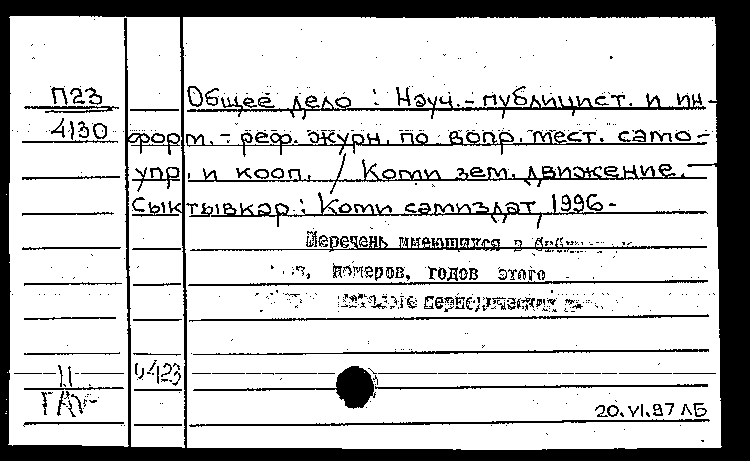 П23
4130
Общее дело : Науч.-публицист. и ин-
форм.-реф. журн. по вопр. мест. само-
упр. и кооп. / Коми зем. движение. —
Сыктывкар : Коми самиздат, 1996-
Перечень имеющихся в
номеров, годов этого
каталоге периодических
11
423
20.VI.97 ЛБ